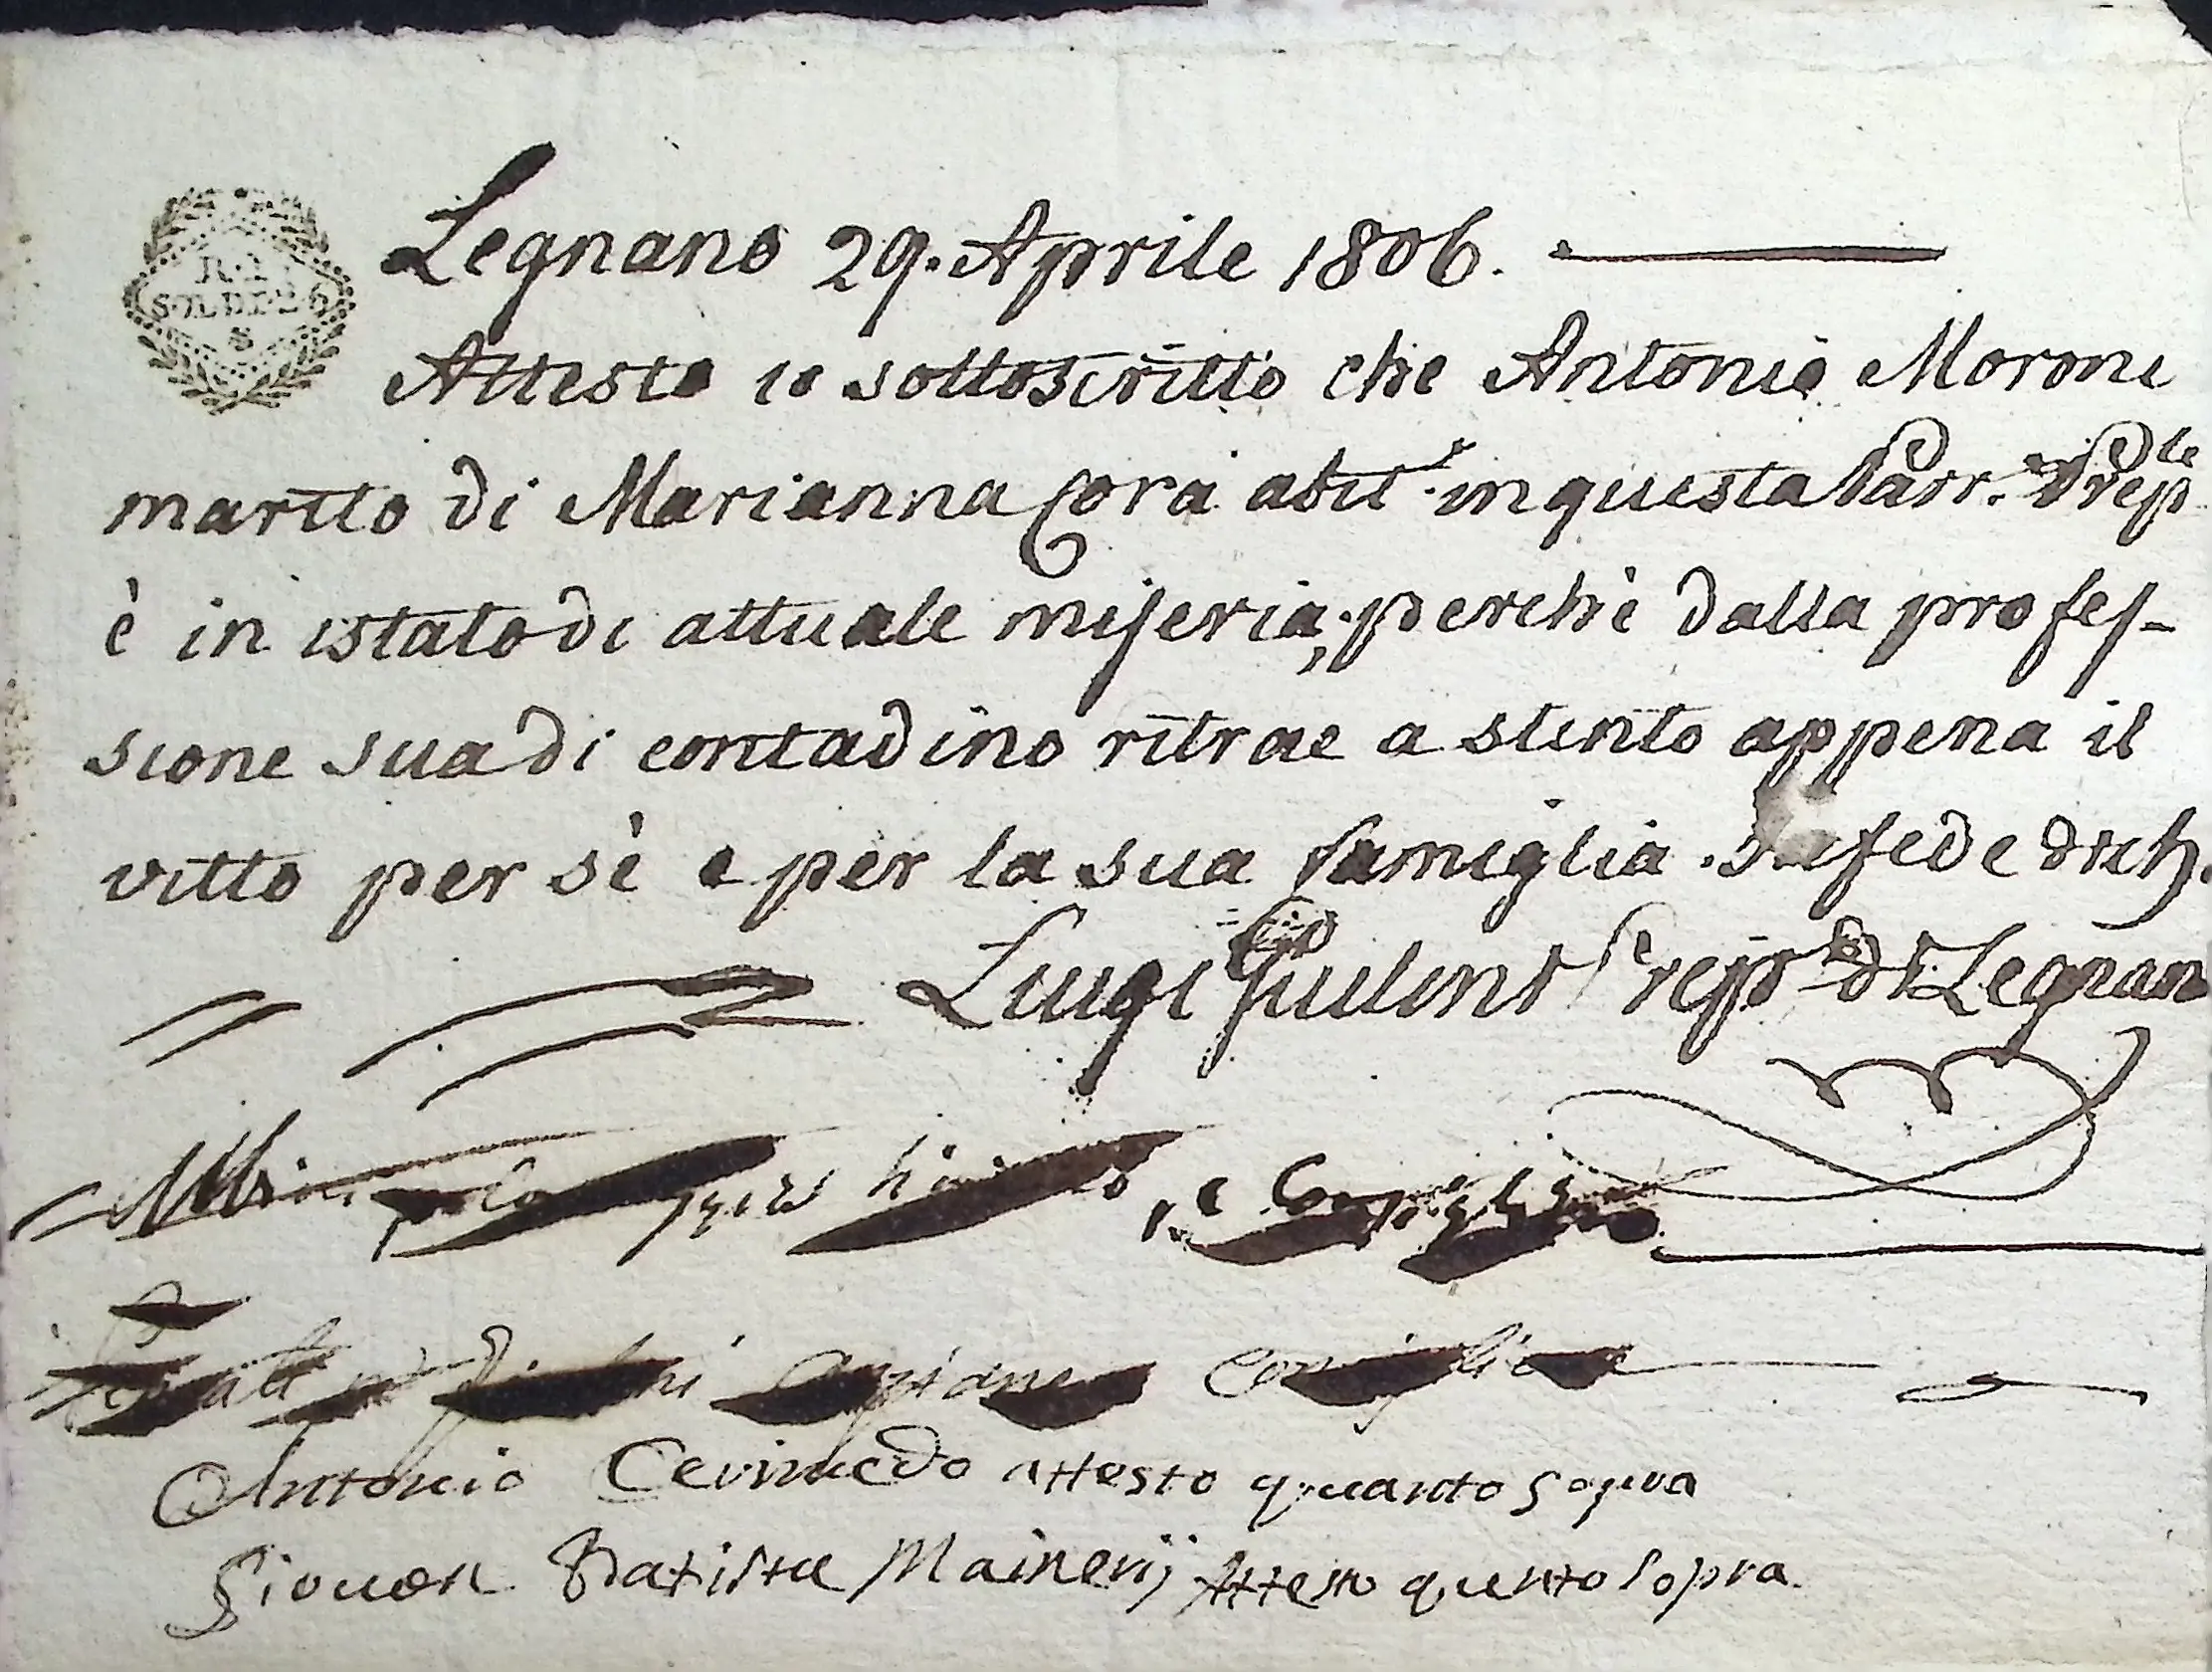 Legnano 29. Aprile 1806.
R. I.
SOLDI 26
8
Attesto io sottoscritto che Antonio Moroni
marito di Marianna Cora abit.e in questa Parr. Prep.le
è in istato di attuale miseria, perchè dalla profes-
sione sua di contadino ritrae a stento appena il
vitto per sè e per la sua famiglia. In fede dich.
Luigi Prep.to di Legnan
per , e
Antonio attesto quanto sopra
Giovan Batista Mainerij Attesto quanto sopra.